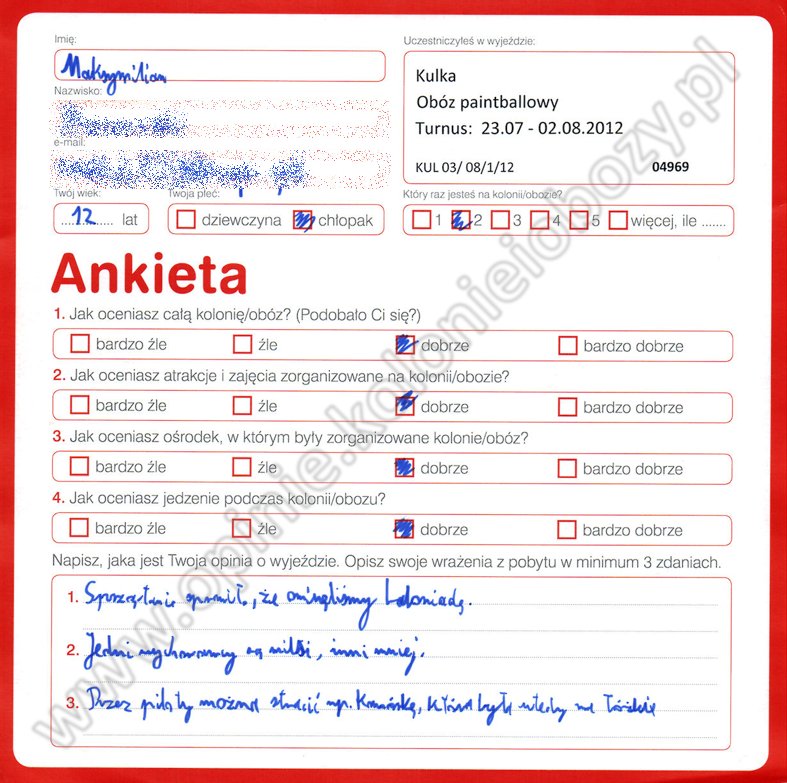 Imię:
Maksymilian
Nazwisko:
e-mail:
Twój wiek:
12 lat
Twoja płeć:
dziewczyna chłopak
Uczestniczyłeś w wyjeździe:
Kulka
Obóz paintballowy
Turnus: 23.07 - 02.08.2012
KUL 03/ 08/1/12 04969
Który raz jesteś na kolonii/obozie?
1 2 3 4 5 więcej, ile .......
Ankieta
1. Jak oceniasz całą kolonię/obóz? (Podobało Ci się?)
bardzo źle źle dobrze bardzo dobrze
2. Jak oceniasz atrakcje i zajęcia zorganizowane na kolonii/obozie?
bardzo źle źle dobrze bardzo dobrze
3. Jak oceniasz ośrodek, w którym były zorganizowane kolonie/obóz?
bardzo źle źle dobrze bardzo dobrze
4. Jak oceniasz jedzenie podczas kolonii/obozu?
bardzo źle źle dobrze bardzo dobrze
Napisz, jaka jest Twoja opinia o wyjeździe. Opisz swoje wrażenia z pobytu w minimum 3 zdaniach.
1. Sprzątanie sprawiło, że ominęliśmy
2. Jedni wychowawcy są mili, inni mniej.
3. Przez piloty można stracić np. która była wtedy na
www.opinie.kolonieiobozy.pl